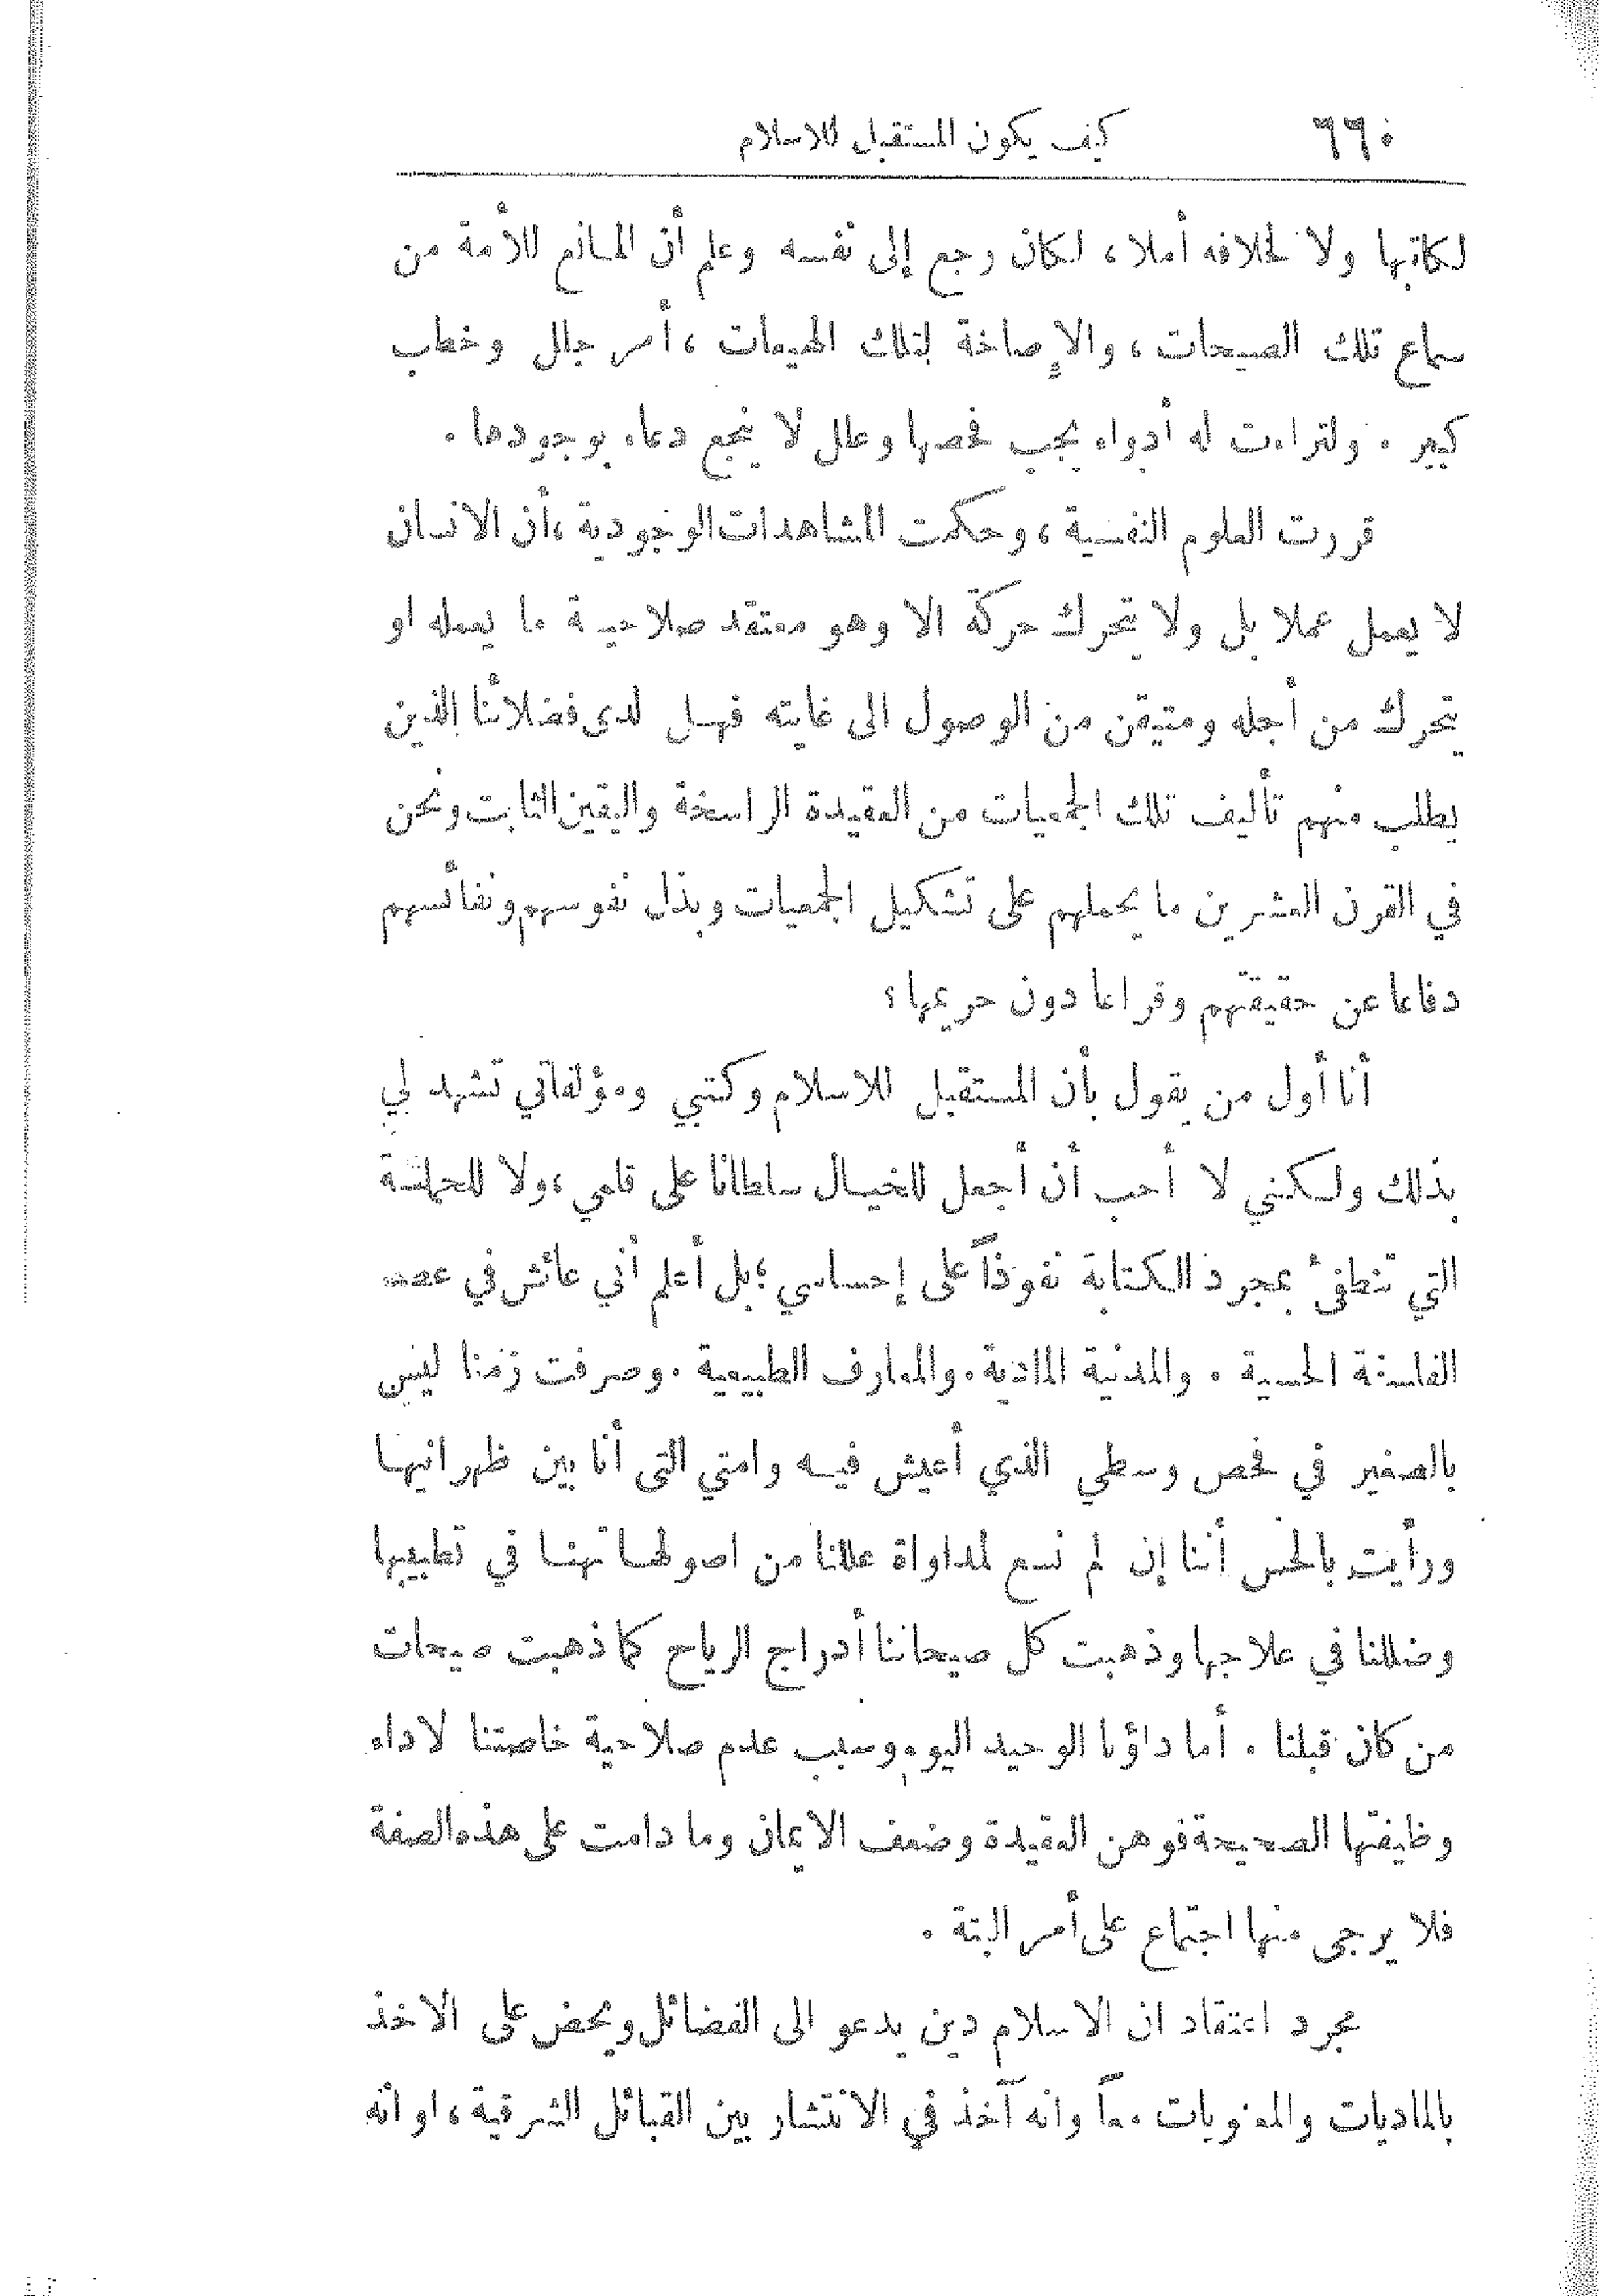 ٦٦٠ كيف يكون المستقبل للاسلام
لكاتبها ولا لخلافه أملا، لكان رجع إلى نفسه وعلم أن المانع للأمة من
سماع تلك الصيحات، والإصاخة لتلك الهيعات، أمر جلل وخطب
كبير . ولتراءت له أدواء يجب فحصها وعلل لا ينجع دعاء بوجودها .
قررت العلوم النفسية، وحكمت المشاهدات الوجودية، أن الانسان
لا يعمل عملا بل ولا يتحرك حركة الا وهو معتقد صلاحية ما يعمله او
يتحرك من أجله ومتيقن من الوصول الى غايته فهل لدى فضلائنا الذين
يطلب منهم تأليف تلك الجمعيات من العقيدة الراسخة واليقين الثابت ونحن
في القرن العشرين ما يحملهم على تشكيل الجمعيات وبذل نفوسهم ونفائسهم
دفاعا عن حقيقتهم وقراعا دون حريمها؟
أنا أول من يقول بأن المستقبل للاسلام وكتبي ومؤلفاتي تشهد لي
بذلك ولكنني لا أحب أن أجعل للخيال سلطانا على قلمي، ولا للحماسة
التي تنطفئ بمجرد الكتابة نفوذاً على إحساسي؛ بل أعلم أني عائش في عصر
الفلسفة الحسية . والمدنية المادية . والمعارف الطبيعية . وصرفت زمنا ليس
بالصغير في فحص وسطي الذي أعيش فيه وامتي التي أنا بين ظهرانيها
ورأيت بالحس أننا إن لم نسع لمداواة عللنا من اصولها تهنا في تطبيبها
وضللنا في علاجها وذهبت كل صيحاتنا أدراج الرياح كما ذهبت صيحات
من كان قبلنا . أما داؤنا الوحيد اليوم وسبب عدم صلاحية خاصتنا لاداء
وظيفتها الصحيحة فوهن العقيدة وضعف الايمان وما دامت على هذه الصفة
فلا يرجى منها اجتماع على أمر البتة .
مجرد اعتقاد ان الاسلام دين يدعو الى الفضائل ويحض على الاخذ
بالماديات والمعنويات معاً وانه آخذ في الانتشار بين القبائل الشرقية، او انه